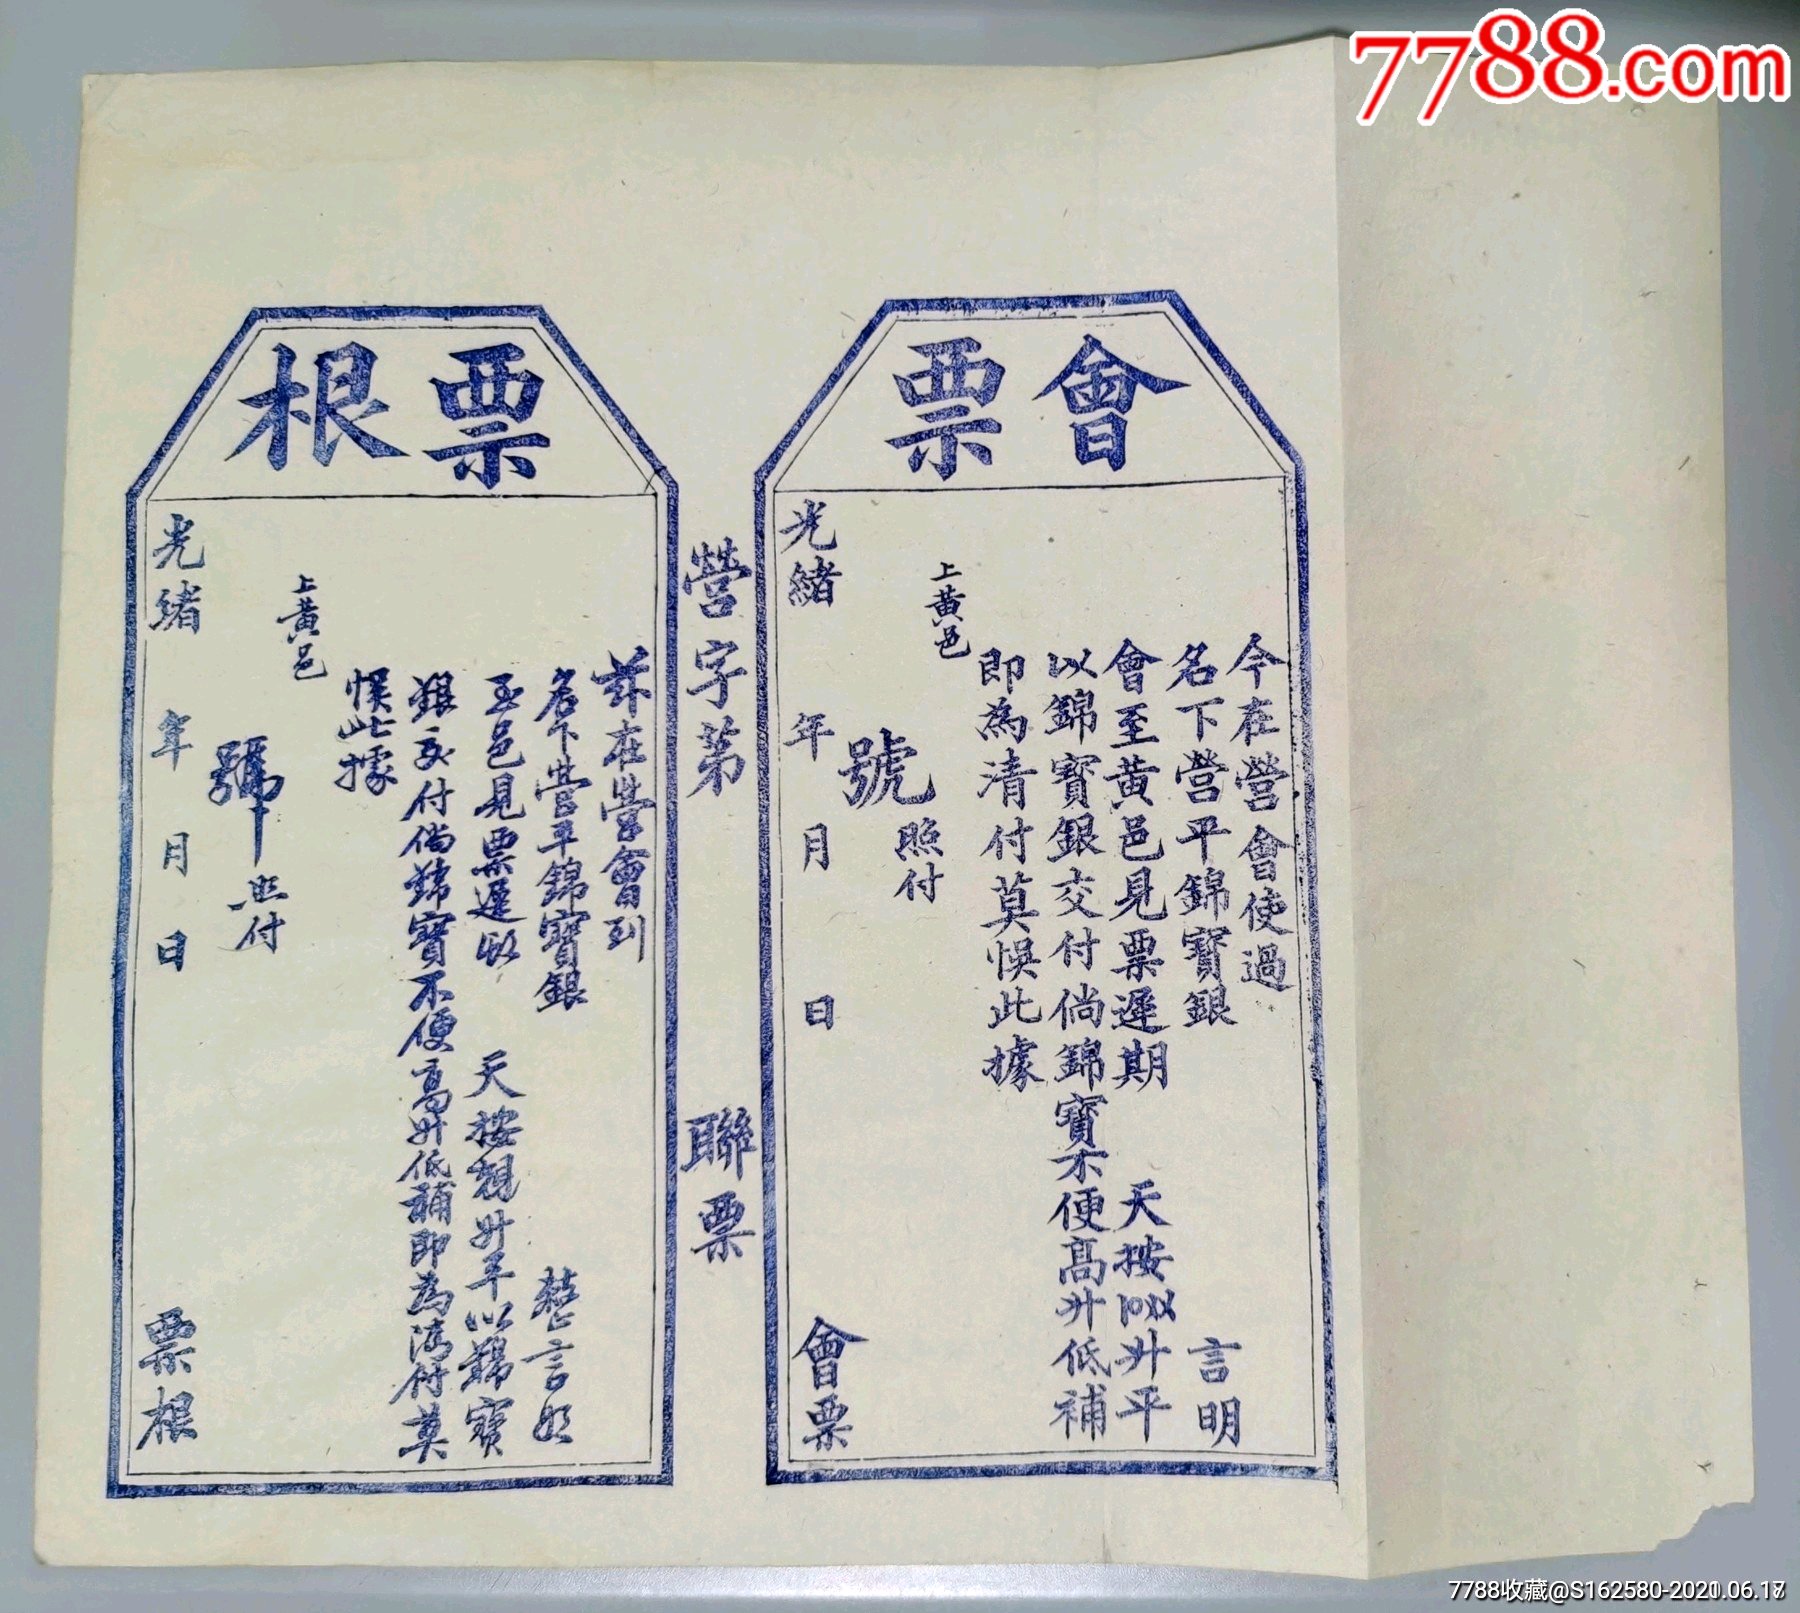 7788.com
會票
今在營會使過
名下營平錦寶銀 言明
會至黃邑見票遲期 天按似升平
以錦寶銀交付倘錦寶不便高升低補
即為清付莫悞此據
上黃邑
號照付
光緒 年 月 日 會票
營字第 聯票
票根
茲在營會到
名下營平錦寶銀 言明
至邑見票遲 天按 升平以錦寶
銀交付倘錦寶不便高升低補即為清付莫
悞此據
上黃邑
號照付
光緒 年 月 日 票根
7788收藏@S162580-2021.06.17